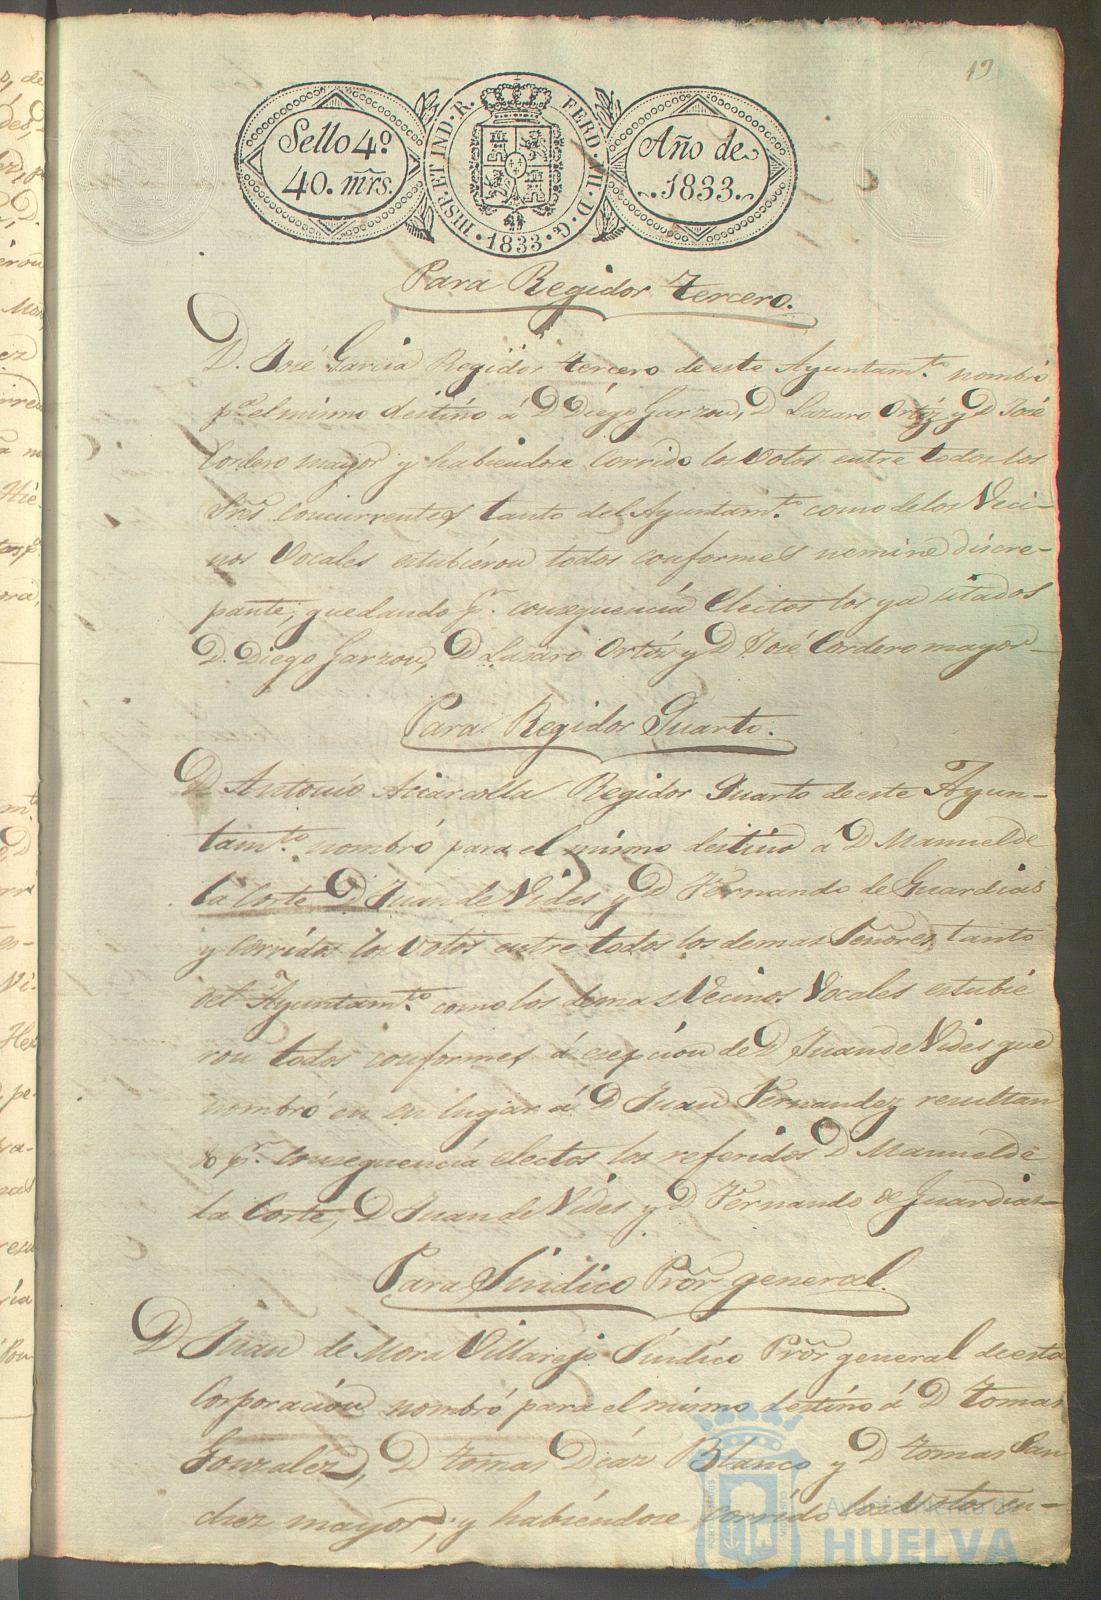 19
Sello 4º
40. mrs.
HISP. ET IND. R. FERD. VII. D. G.
1833
Año de
1833.
Para Regidor tercero.
D. José Garcia Regidor tercero de este Ayuntamto. nombró
pa. el mismo destino á D Diego Garzon, D Lazaro Ortiz y D José
Cordero mayor y habiendose corrido los votos entre todos los
Sres concurrentes tanto del Ayuntamto. como de los Veci-
nos Vocales estubieron todos conformes nemine discre-
pante, quedando pr. consequencia electos los ya citados
D. Diego Garzon, D Lasaro Ortiz y D José Cordero mayor
Para Regidor Quarto.
D Antonio Regidor Quarto de este Ayun-
tamto. nombró para el mismo destino á D Manuel de
la Corte D Juan de Vides y D Fernando de Guardias
y corridos los votos entre todos los demas Señores, tanto
del Ayuntamto. como los demas Vecinos Vocales estubie
ron todos conformes á esepcion de D Juan de Vides que
nombró en su lugar á D Juan Fernandez resultan
do pr. consequencia electos los referidos D Manuel de
la Corte, D Juan de Vides y D Fernando de Guardias
Para Sindico Pror general.
D Juan de Mora Villarejo Sindico Pror general de esta
Corporacion nombró para el mismo destino á D Tomas
Gonzalez, D Tomas Diaz Blanco y D Tomas San
chez mayor, y habiendose corrido los votos en-
Ayuntamiento de
HUELVA